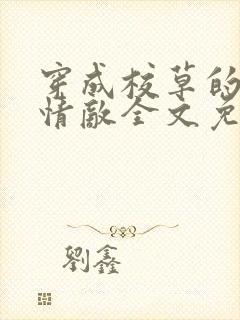 穿成校草的
情敌全文免
劉鑫